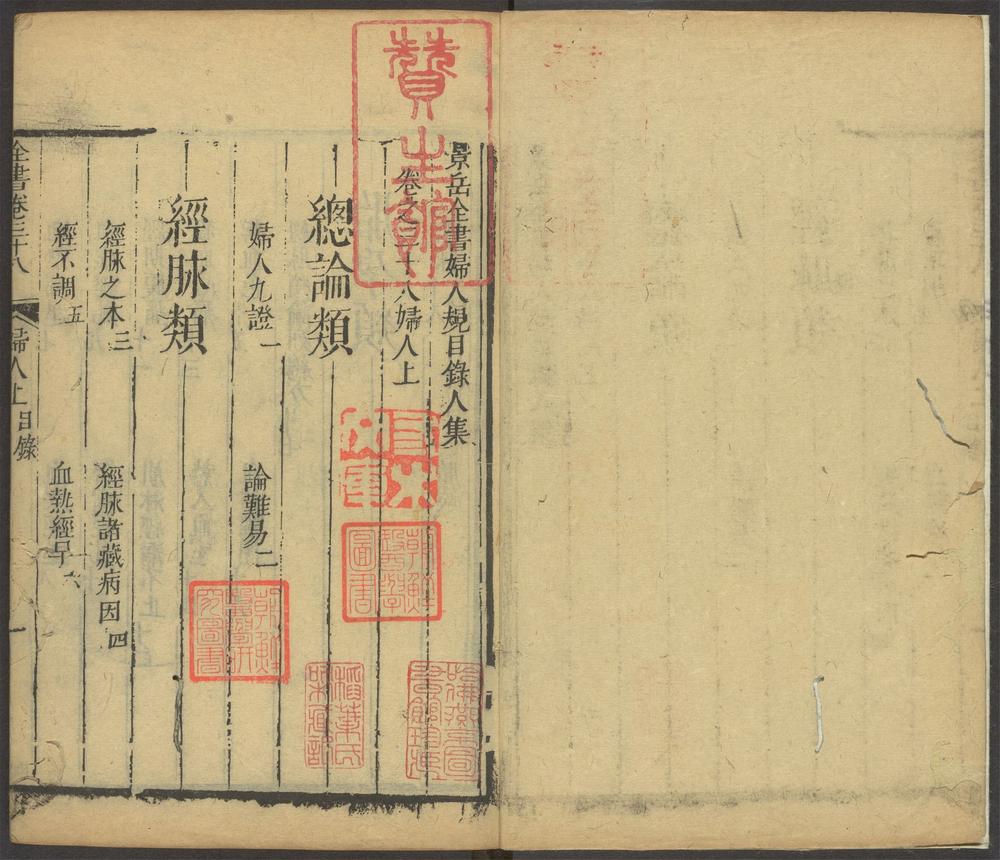 景岳全書婦人規目錄人集
卷之三十八婦人上
總論類
婦人九證一
論難易二
經脉類
經脉之本三
經脉諸藏病因四
經不調五
血熱經早六
全書卷三十八
婦人上目錄
贊生館
朝鮮醫學圖書